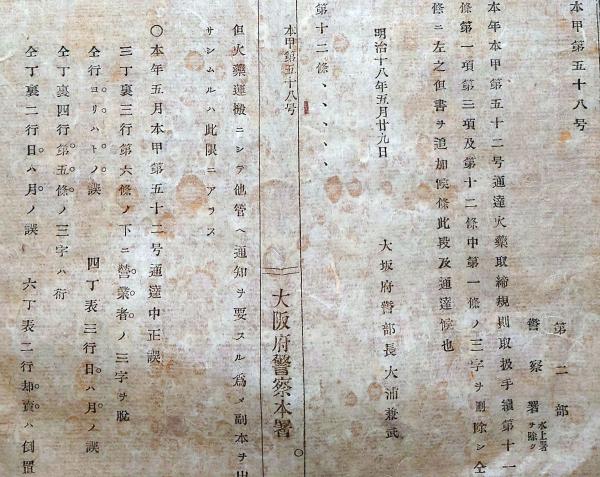 本甲第五十八号
第二部
警察署 水上署ヲ除ク
本年本甲第五十二号通達火薬取締規則取扱手續第十一
條第一項第三項及第十二條中第一條ノ三字ヲ刪除シ仝
條ニ左之但書ヲ追加候條此段及通達候也
明治十八年五月廿九日
大坂府警部長大浦兼武
第十二條、、、、、
本甲第五十八号
大阪府警察本署。
但火藥運搬ニシテ他管ヘ通知ヲ要スル爲メ副本ヲ出
サシムルハ此限ニアラス
〇本年五月本甲第五十二号通達中正誤
三丁裏三行第六條ノ下ニ營業者ノ三字ヲ脱
仝行ヨリハトノ誤 四丁表三行日ハ月ノ誤
仝丁裏四行第五條ノ三字ハ衍
仝丁裏二行日ハ月ノ誤 六丁表二行却賣ハ倒置